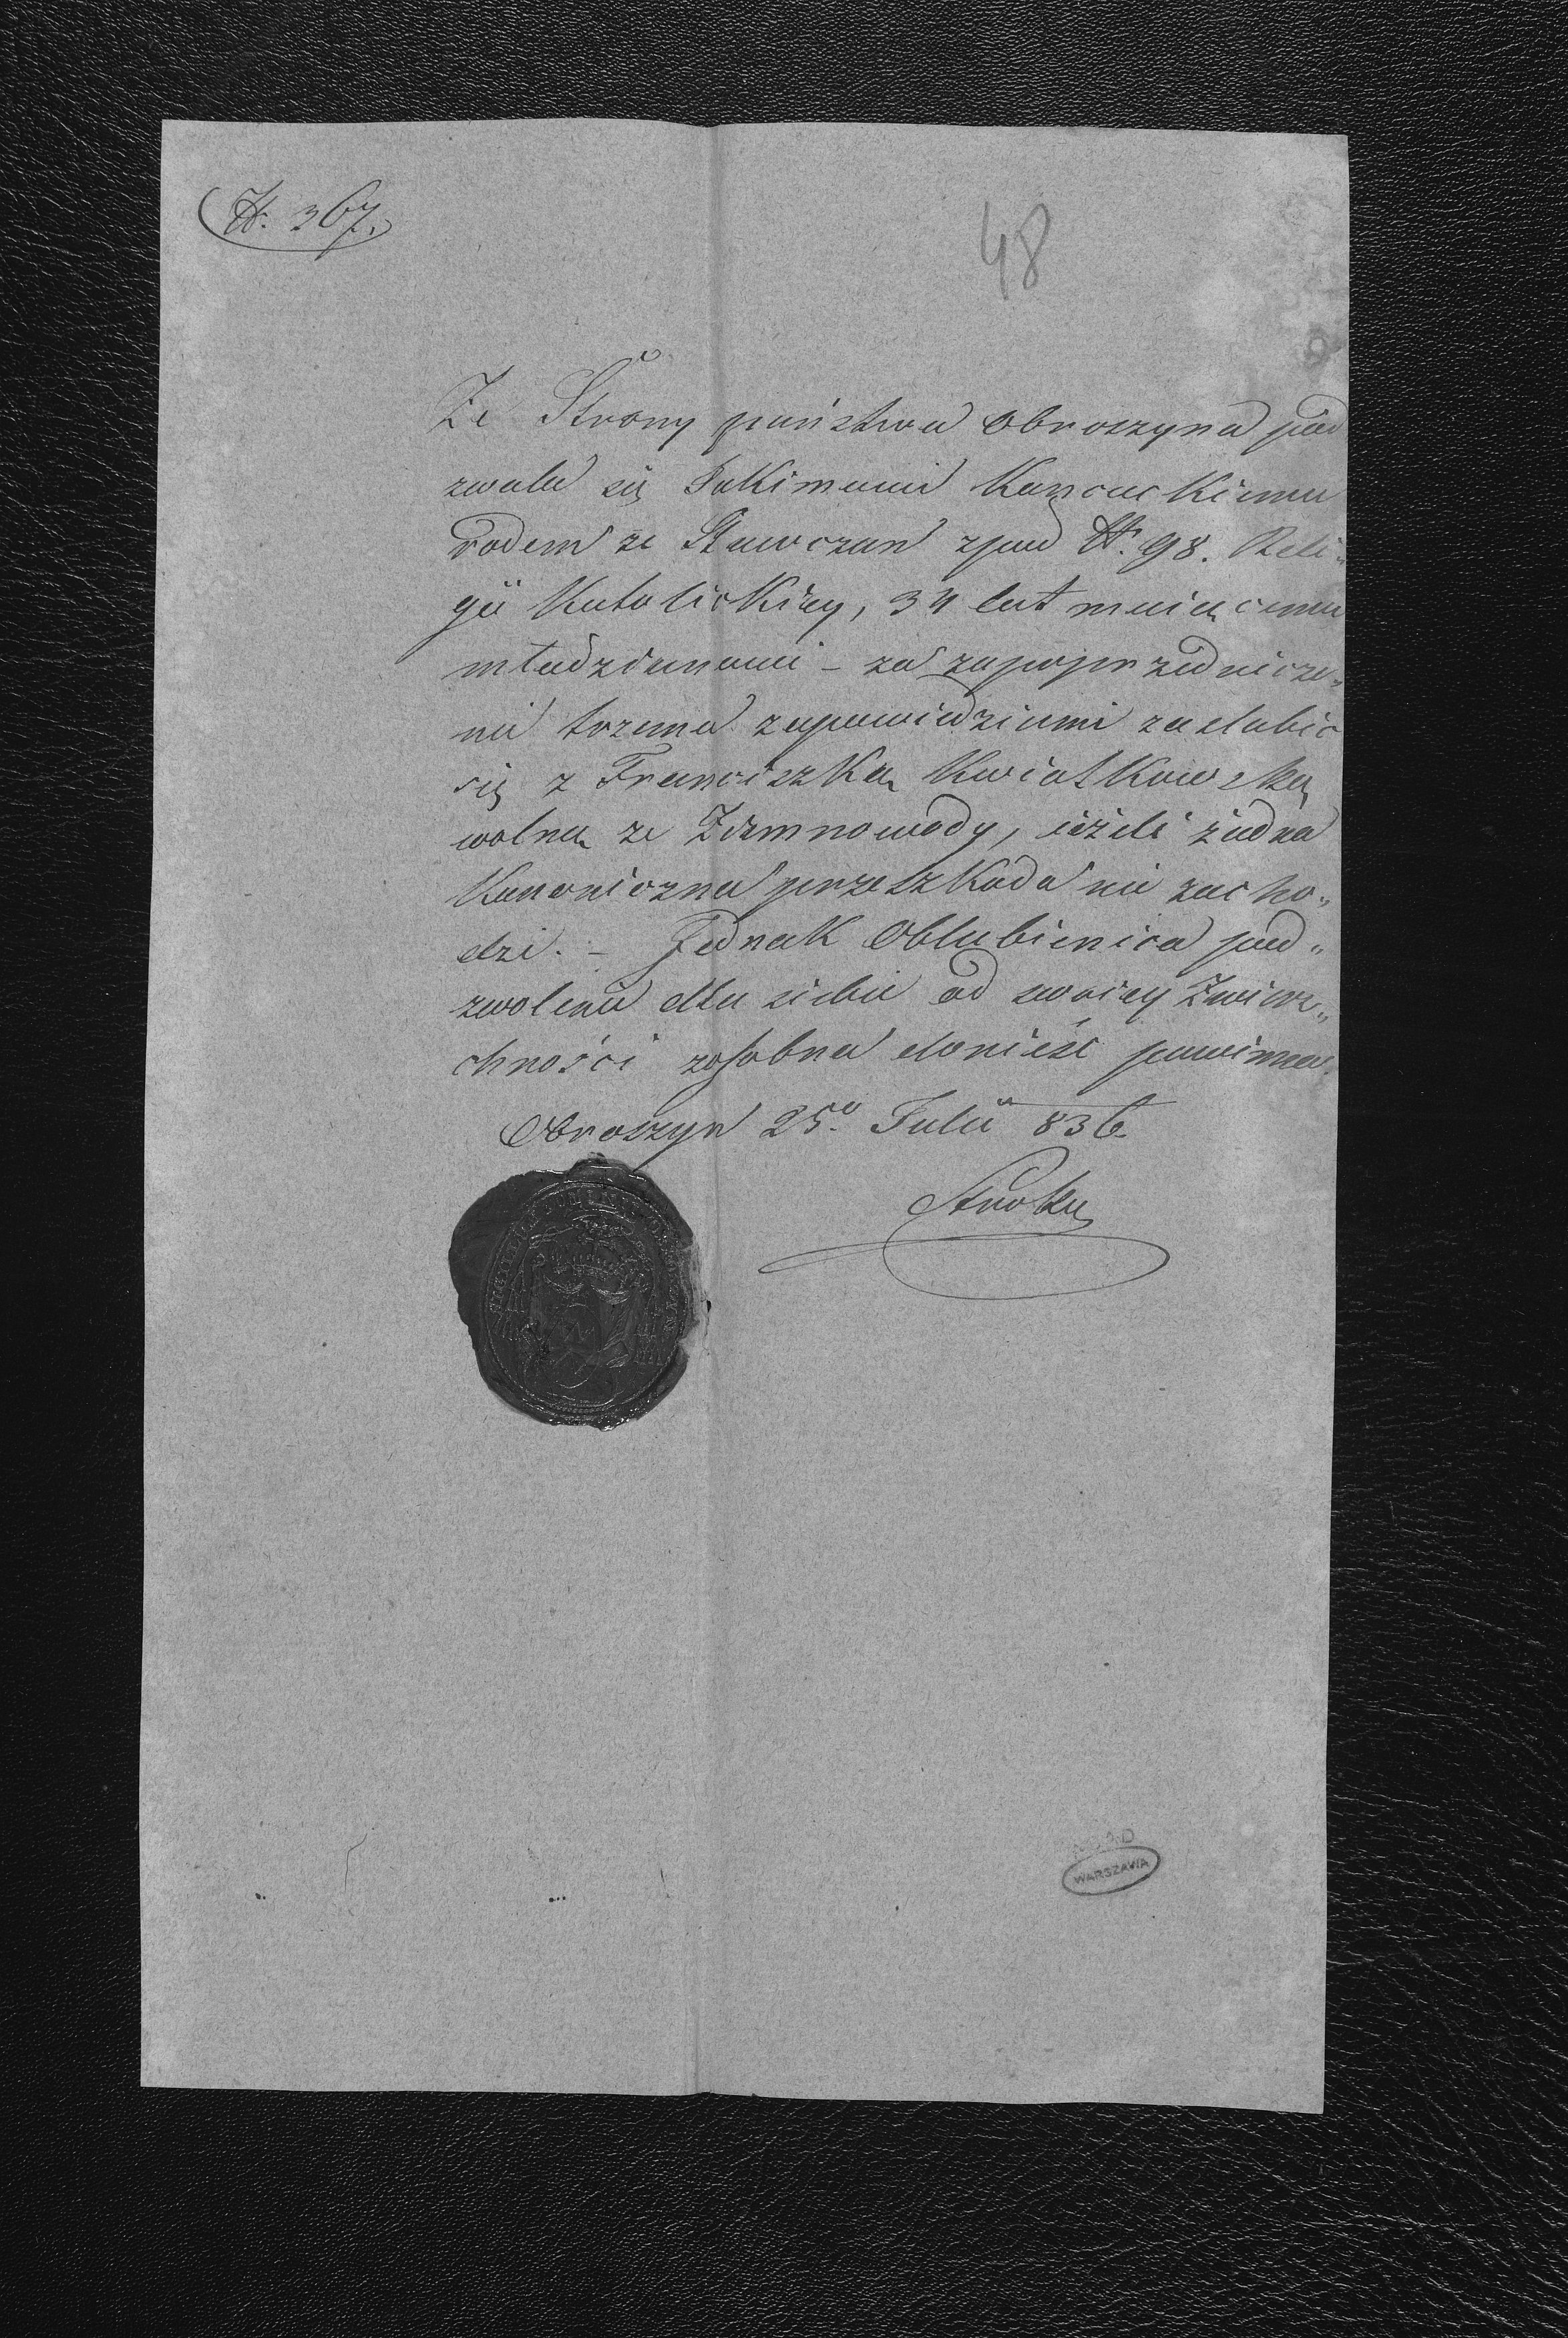 N. 367.
48
Ze Strony państwa Obroszyna pod
zwala się Jakimowi Kancuckiemu
rodem ze Stawczan zpod N. 98. Reli„
gii Katolickiey, 34 lat maiącemu
młodzianowi – za zapoprzednicze„
nie trzema zapowiedziami zaslubic
się z Franciszką Kwiatkowską
wolną ze Zimnowody, ieżeli żadna
Kanoniczna przeszkoda nie zacho„
dzi. – Jednak Oblubienica pod„
zwolenie dla siebie od swoiey Zwierz„
chności zosobna donieść powinna.
Obroszyn 25º Julii 836.
WARSZAWA